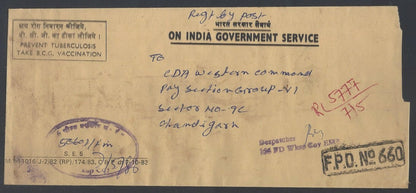 Regt by post
क्षय रोग निवारण कीजिये,
बी. सी. जी. का टीका लीजिये।
PREVENT TUBERCULOSIS
TAKE B.C.G. VACCINATION
भारत सरकार सेवार्थ
ON INDIA GOVERNMENT SERVICE
To
CDA Western command
Pay Section Group-VI
Sector No-9C
Chandigarh
R 5777
7/5
S E 5
Despatcher
F.P.O. No 660